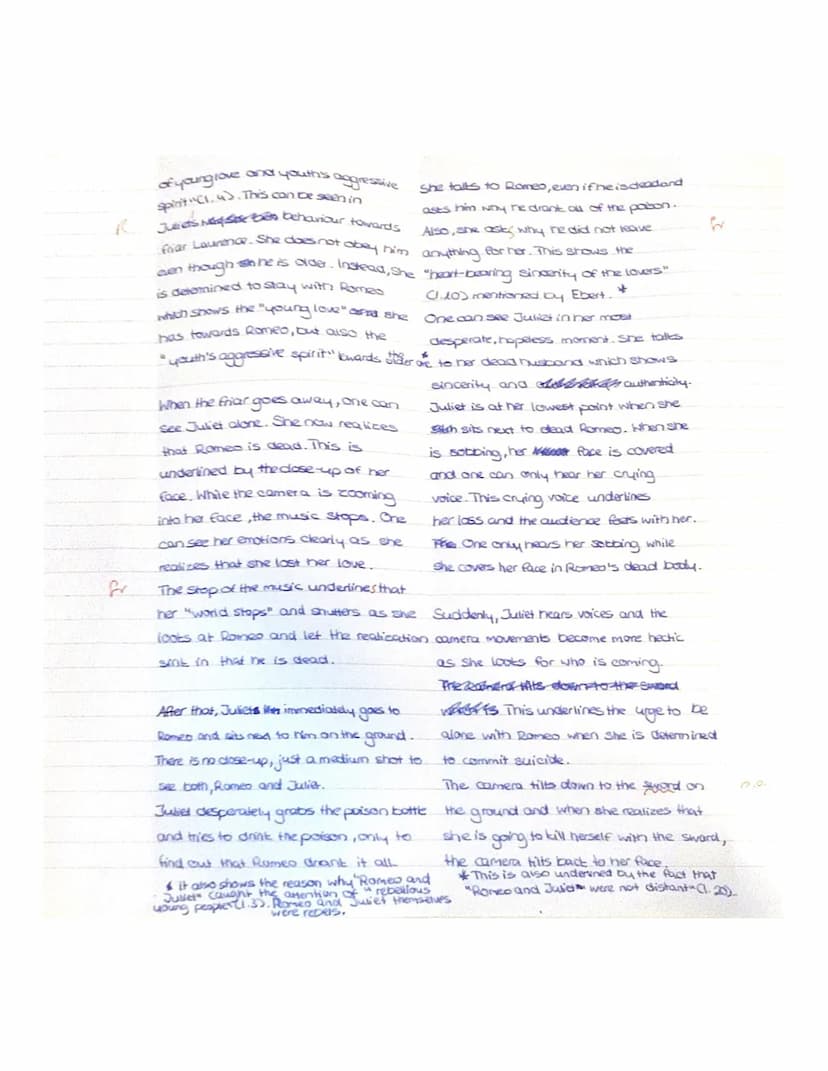 of young love and youth's aggressive
spirit" (l. 4). This can be seen in
R
Juliet's behaviour towards
Friar Laurence. She does not obey him
even though he is older. Instead, she
is detemined to stay with Romeo
which shows the "young love" she
has towards Romeo, but also the
"youth's aggressive spirit" towards the older one*
When the friar goes away, one can
see Juliet alone. She now realizes
that Romeo is dead. This is
underlined by the close-up of her
face. While the camera is zooming
into her face, the music stops. One
can see her emotions clearly as she
realizes that she lost her love.
Gr
The stop of the music underlines that
her "world stops" and shutters as she
looks at Romeo and let the realication
sink in that he is dead.
After that, Juliet immediately goes to
Romeo and sits next to him on the ground.
There is no close-up, just a medium shot to
see both, Romeo and Juliet.
Juliet desperately grabs the poison bottle
and tries to drink the poison, only to
find out that Romeo drank it all.
* it also shows the reason why "Romeo and
Juliet" caught the attention of "rebellious
young people" (l. 3). Romeo and Juliet themselves
were rebels.
She talks to Romeo, even if he is dead and
asks him why he drank all of the poison.
Also, she asks, why he did not leave
Gr
anything for her. This shows the
"heart-bearing sincerity of the lovers"
(l. 10) mentioned by Ebert. *
One can see Juliet in her most
desperate, hopeless moment. She talks
to her dead husband which shows
sincerity and authenticity.
Juliet is at her lowest point when she
sits next to dead Romeo. When she
is sobbing, her face is covered
and one can only hear her crying
voice. This crying voice underlines
her loss and the audience feels with her.
One only hears her sobbing while
she covers her face in Romeo's dead body.
Suddenly, Juliet hears voices and the
camera movements become more hectic
as she looks for who is coming.
The camera tilts down to the sword
This underlines the urge to be
alone with Romeo when she is determined
to commit suicide.
The camera tilts down to the sword on
the ground and when she realizes that
she is going to kill herself with the sword,
the camera tilts back to her face.
* This is also underlined by the fact that
"Romeo and Juliet" were not distant" (l. 20).